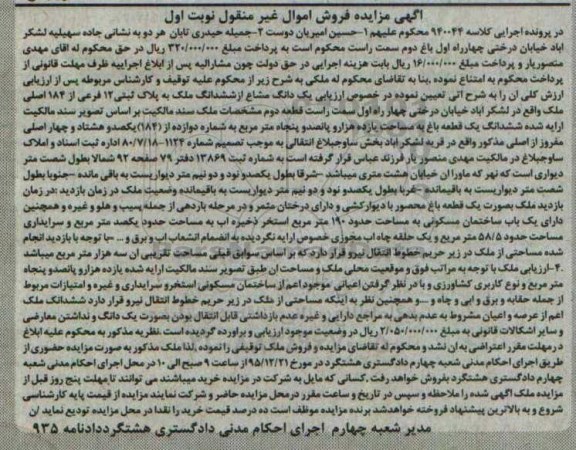 آگهی مزایده فروش اموال غیر منقول نوبت اول
در پرونده اجرایی کلاسه ۹۴۰۰۴۴ محکوم علیهم ۱-حسین امیریان دوست ۲-جمیله حیدری تابان هر دو به نشانی جاده سهیلیه لشکر
اباد خیابان درختی چهارراه اول باغ دوم سمت راست محکوم است به پرداخت مبلغ ۳۲۰/۰۰۰/۰۰۰ ریال در حق محکوم له اقای مهدی
منصوریار و پرداخت مبلغ ۱۶/۰۰۰/۰۰۰ ریال بابت هزینه اجرایی در حق دولت چون مشارالیه پس از ابلاغ اجراییه ظرف مهلت قانونی از
پرداخت محکوم به امتناع نموده .بنا به تقاضای محکوم له ملکی به شرح زیر از محکوم علیه توقیف و کارشناس مربوطه پس از ارزیابی
ارزش کلی ان را به شرح اتی تعیین نموده در خصوص ارزیابی یک دانگ مشاع ازششدانگ ملک به پلاک ثبتی ۱۲ فرعی از ۱۸۴ اصلی
ملک واقع در لشکر اباد خیابان درختی چهار راه اول سمت راست قطعه دوم مشخصات ملک سند مالکیت بر اساس تصویر سند مالکیت
ارایه شده ششدانگ یک قطعه باغ به مساحت یازده هزارو پانصدو پنجاه متر مربع به شماره دوازده از (۱۸۴)یکصدو هشتاد و چهار اصلی
مفروز از اصلی مذکور واقع در قریه لشکر اباد بخش ساوجبلاغ انتقالی به موجب تصمیم شماره ۱۱۲۴-۸۰/۷/۱۸ اداره ثبت اسناد و املاک
ساوجبلاغ در مالکیت مهدی منصور یار فرزند عباس قرار گرفته است به شماره ثبت ۱۳۸۶۹ دفتر ۷۹ صفحه ۹۲ شمالا بطول شصت متر
دیواری است که نهر که ماورا ان خیابان هشت متری میباشد -شرقا بطول یکصدو نود و دو نیم متر دیواریست به باقی مانده -جنوبا بطول
شصت متر دیواریست به باقیمانده -غربا بطول یکصدو نود و دو نیم متر دیواریست به باقیمانده وضعیت ملک در زمان بازدید :در زمان
بازدید ملک بصورت یک قطعه باغ محصور با دیوارکشی و دارای درختان مثمر و در مرحله باردهی از جمله سیب و هلو و غیره و همچنین
دارای یک باب ساختمان مسکونی به مساحت حدود ۱۹۰ متر مربع استخر ذخیره اب به مساحت حدود یکصد متر مربع و سرایداری
مساحت حدود ۵۸/۵ متر مربع و یک حلقه چاه اب مجوزی خصوص ارایه نگردیده به انضمام انشعاب اب و برق و ... -با توجه با بازدید انجام
شده مساحتی از ملک در زیر حریم خطوط انتقال نیرو قرار دارد که بر اساس سوابق قبلی مساحت تقریبی ان سه هزار متر مربع میباشد
.۴-ارزیابی ملک با توجه به مراتب فوق و موقعیت محلی ملک و مساحت ان طبق تصویر سند مالکیت ارایه شده یازده هزارو پانصدو پنجاه
متر مربع و نوع کاربری کشاورزی و با در نظر گرفتن اعیانی موجود اعم از ساختمان مسکونی استخرو سرایداری و غیره و امتیازات مربوط
از جمله حقابه و برق و ابی و چاه و ...و همچنین نظر به اینکه مساحتی از ملک در زیر حریم خطوط انتقال نیرو قرار دارد ششدانگ ملک
اعم از عرصه و اعیان مشروط به عدم بدهی به مراجع دارایی و غیره عدم بازداشتی قابل انتقال بودن بصورت یک دانگ و نداشتن معارضی
و سایر اشکالات قانونی به مبلغ ۲/۰۵۰/۰۰۰/۰۰۰ ریال در وضعیت موجود ارزیابی و براورده گردیده است .نظریه مذکور به محکوم علیه ابلاغ
در مهلت مقرر اعتراضی به ان نشد و محکوم له تقاضای مزایده و فروش ملک توقیفی رانموده .لذا ملک مذکور به صورت مزایده حضوری از
طریق اجرای احکام مدنی شعبه چهارم دادگستری هشتگرد در مورخ ۹۵/۱۲/۲۱از ساعت ۹ صبح الی ۱۰ در محل اجرای احکام مدنی شعبه
چهارم دادگستری هشتگرد بفروش خواهد رفت .کسانی که مایل به شرکت در مزایده خرید میباشند می توانند تامهلت پنج روز قبل از
مزایده ملک اگهی شده را ملاحظه و سپس در تاریخ و ساعت مقرر درمحل مزایده حاضر و شرکت نمایند مزایده از قیمت پایه کارشناسی
شروع و به بالاترین پیشنهاد فروخته خواهدشد .برنده مزایده موظف است ده درصد قیمت خرید را نقدا در محل مزایده تودیع نماید /ن
مدیر شعبه چهارم اجرای احکام مدنی دادگستری هشتگرددادنامه ۹۳۵